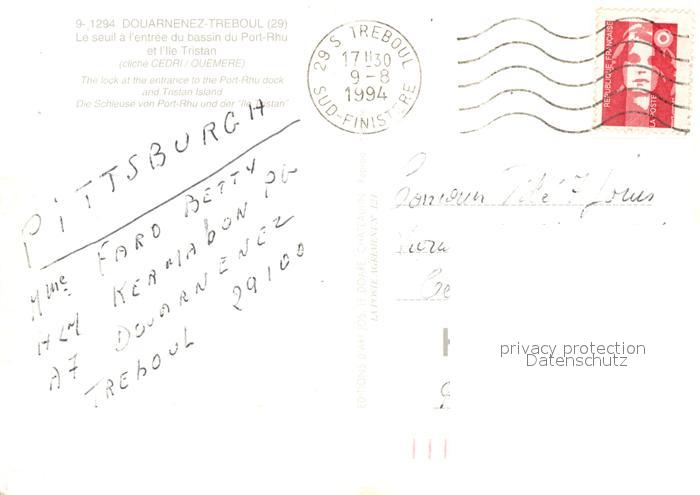 9-1294 DOUARNENEZ-TREBOUL (29)
Le seuil à l'entrée du bassin du Port-Rhu
et l'Ile Tristan
(cliché CEDRI / QUEMERE)
The lock at the entrance to the Port-Rhu dock
and Tristan Island
Die Schleuse von Port-Rhu und der "Ile Tristan"
29 S. TREBOUL
17H30
9-8
1994
SUD-FINISTERE
REPUBLIQUE FRANÇAISE
LA POSTE
PITTSBURGH
Mme FARO BETTY
HLM KERMABON PG
A7 DOUARNENEZ
TREBOUL 29100
Bonjour
privacy protection
Datenschutz